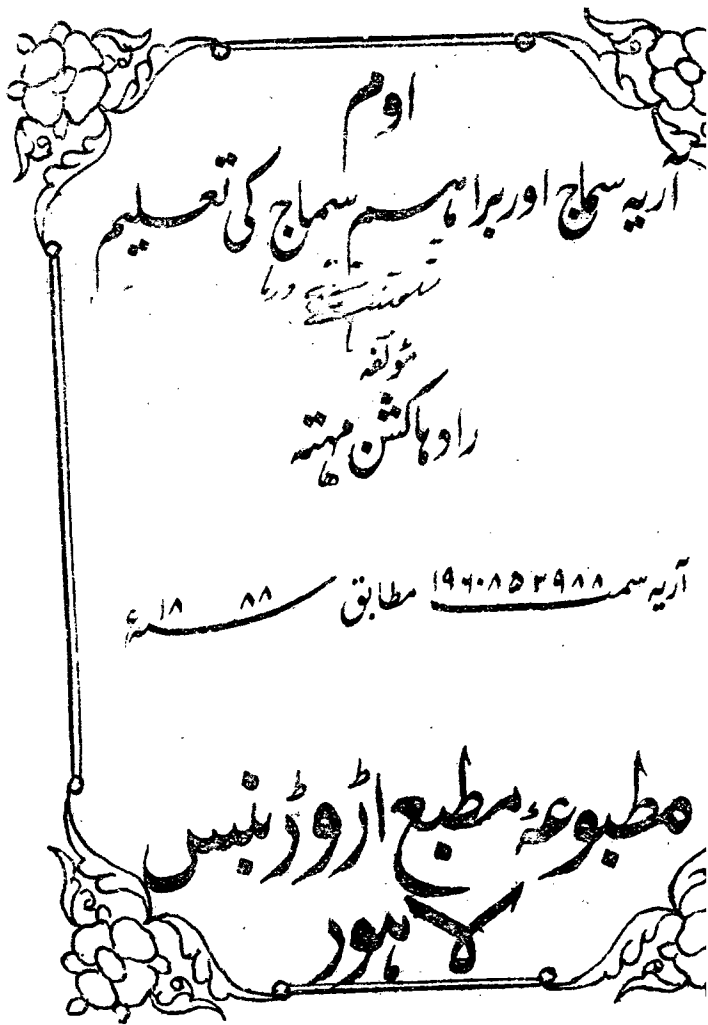 اوم
آریہ سماج اور براہم سماج کی تعلیم
مؤلفہ
رادھا کشن مہتہ
آریہ سمہ ۱۹۶۰۸۵۲۹۸۸ مطابق ۱۸۸۸ء
مطبوعۂ مطبع اڑوڑ بنس
لاہور